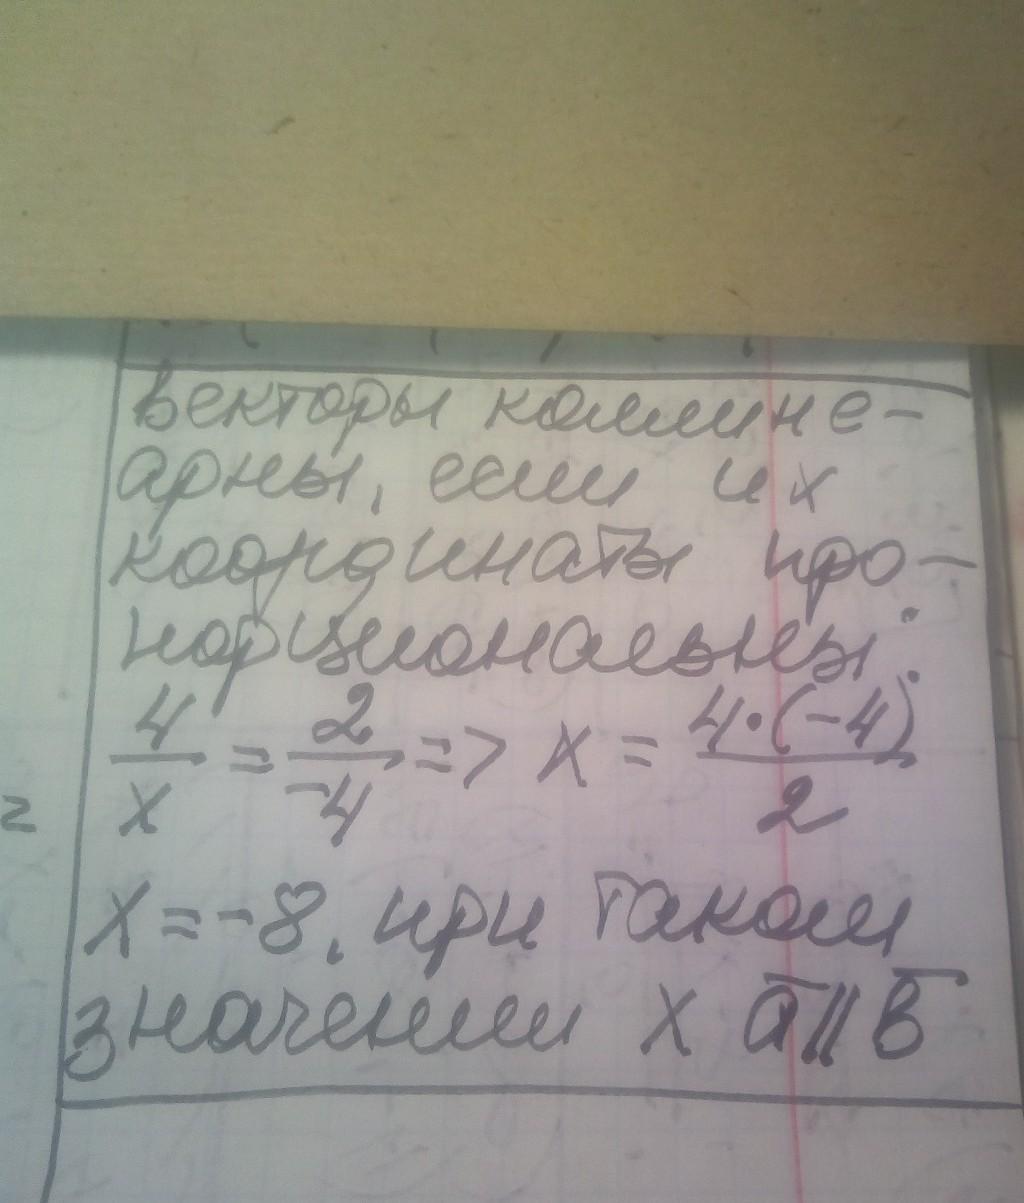 Векторы коллине-
арны, если их
координаты про-
порциональны:
4/x = 2/-4 => x = 4·(-4)/2
x = -8, при таком
значении x a̅ || b̅
=